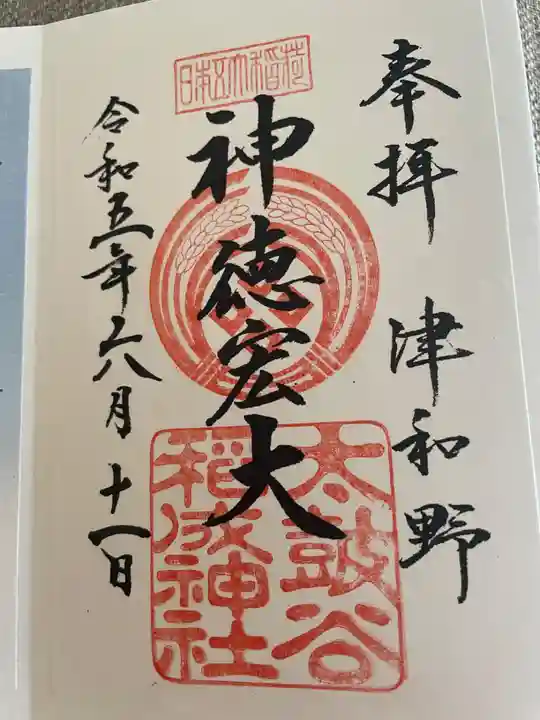 奉拝 津和野
日本五大稲荷
神徳宏大
太皷谷
稲成神社
令和五年六月十一日